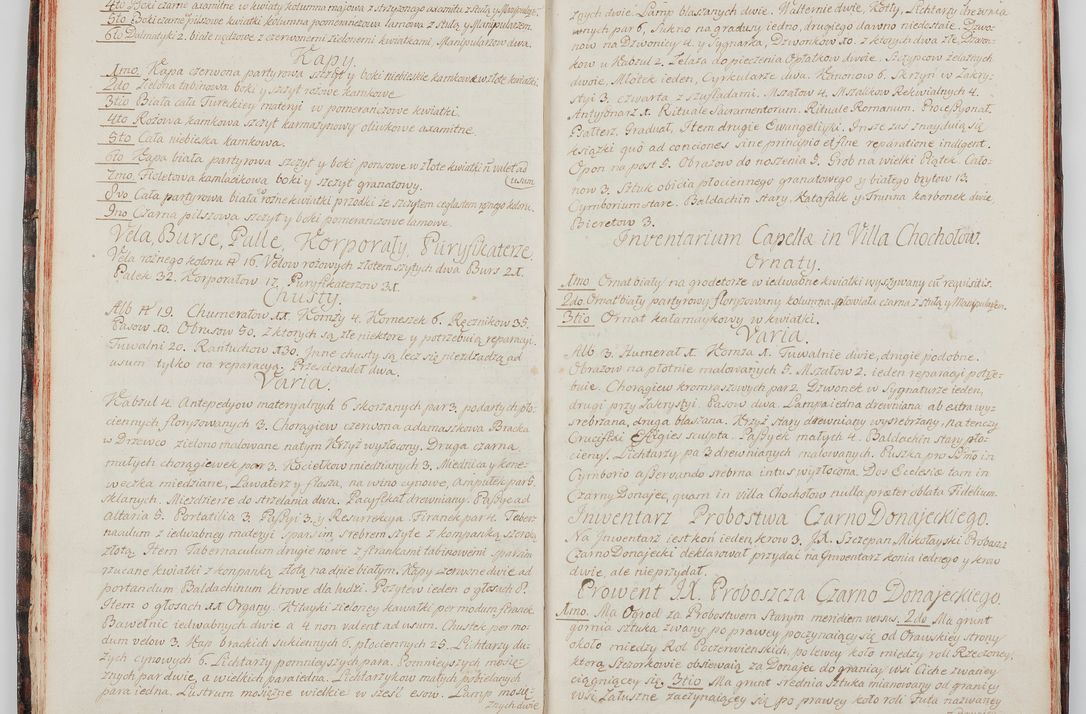 4to Boki czarne axamitne w kwiaty kolumna majowa z strzyżnego axamitu z stułą y Manipularze.
5to Boki czarne pilszowe kwiatki kolumna pomeranczowa lamowa z stułą y Manipularzem.
6to Dalmatyki 2. białe nędzowe z czerwonemi zielonemi kwiatkami, Manipularzow dwa.
Kapy.
1mo. Kapa czerwona partyrowa szczyt y boki niebieskie kamkowe w złote kwiatki.
2do Zielona tabinowa boki y szczyt rożowe kamkowe
3tio Biała cała Tureckiey materyi w pomerańczowe kwiatki.
4to Rożowa kamkowa szczyt karmazynowy oliwkowe axamitne
5to Cała niebieska kamkowa.
6to Kapa biała partyrowa szczyt y boki ponsowe w złote kwiatki ñ valet ad usum
7mo. Fioletowa kamlacikowa boki y szczyt granatowy.
8vo Cała partyrowa biała rożne kwiatki przodki ze szczytem ceglastem rożnego koloru.
9no Czarna pilszowa szczyt y boki pomerańczowe lamowe.
Vela, Burse, Palle, Korporały, Puryfikaterze.
Vela rożnego koloru N 16. Velow rożowych złotem szytych dwa Burs 21.
Palek 32. Korporałow 17. Puryfikaterzow 31.
Chusty.
Alb N 19. Chumerałow 11. Komży 4. Komeszek 6. Ręcznikow 35.
Pasow 10. Obrusow 50. z ktorych są złe niektore y potrzebuią reparacyi.
Tuwalni 20. Rantuchow 130. Inne chusty są lecz się niezdadzą ad
usum tylko na reparacyą. Przescieradeł dwa.
Varia.
Kabzul 4. Antepedyow materyalnych 6 skorzanych par 3. podartych pło-
ciennych floryzowanych 3. Chorągiew czerwona adamaszkowa Bracka
w Drzewco zielono malowane na tym Krzyż wyzłocony. Druga czarna
małych chorągiewek par 3. Kociełkow miedzianych 3. Miednica y kone-
weczka miedziane, Lawaterz y flasza, na wino cynowe, Ampułek par 5
szklanych. Mozdzierze do strzelania dwa. Pacyfikał drewniany. Passye ad
altaria 5. Portatilia 3. Passyi 3. y Resurrekcya Firanek par 4. Taber-
naculum z iedwabney materyi sparsim srebrem szyte z kompanką szeroką
złotą. Item Tabernaculum drugie nowe z firankami tabinowemi sparsim
rzucane kwiatki z konpanką złotą na dnie białym. Kapy czerwone dwie ad
portandum Baldachinum kirowe dla ludzi. Pozytew ieden o głosach 8.
Item o głosach 11 Organy. Kituyki zieloney kawałki per modum firanek
Bawełnic iedwabnych dwie a 4 non valent ad usum. Chustek per mo-
dum velow 3. Kap brackich sukiennych 6. płociennych 25. Lichtarzy du-
żych cynowych 6. Lichtarzy pomnieyszych para. Pomnieyszych mosię-
żnych par dwie, a wielkich para iedna. Lichtarzykow małych pobielanych
para iedna. Lustrum mosiężne wielkie w sześć esow. Lamp mosię-
żnych dwie
żnych dwie. Lamp blaszanych dwie. Laternie dwie, Kotły, Lichtarzy drewnia-
nnych par 6, Sukno na gradusy iedno, drugiego dawno niedostaie. Dzwo-
now na Dzwonicy 4. y Sygnarka, Dzwonkow 10. z ktorych dwa złe Dzwon-
kow u Kabzul 2. Zelaza do pieczenia Opłatkow dwoie. Szczypcow zelaznych
dwoie, Młotek ieden, Cyrkularze dwa. Kanonow 6. Skrzyń w Zakry-
styi 3. czwarta z szufladami. Mszałow 4. Mszalikow Rekwialnych 4.
Antyfonarz 1. Rituale Sacramentorum. Rituale Romanum. Processyonał.
Psałterz, Graduał, Item drugie Ewangeliyki. Insze zas znayduią się
Ksiązki quo ad conciones sine principio et fine reparatione indigent.
Opon na post 5. Obrazow do noszenia 5. Grob na wielki Piątek. Cało-
now 3. Sztuk obicia płociennego granatowego y białego brytow 13.
Cymborium stare. Baldachin stary, Katafalk y Trunna karbonek dwie,
Bieretow 3.
Inventarium Capellæ in Villa Chochołow.
Ornaty.
1mo Ornat biały na grodetorze w iedwabne kwiatki wyszywany cũ requisitis.
2do. Ornat biały partyrowy floryzowany kolumna splowiała czarna z stułą y Manipularzem.
3tio Ornat kałamaykowy w kwiatki.
Varia.
Alb 3. Humerał 1. Komza 1. Tuwalnie dwie, drugie podobne.
Obrazow na płotnie malowanych 5. Mszałow 2. ieden reparacyi potrze-
buie. Chorągiew kromraszowych par 2. Dzwonek w Sygnaturze ieden,
drugi przy Zakrystyi. Pasow dwa. Lampa iedna drewniana ab extra wy-
srebrzana, druga blaszana. Krzyż stary drewniany wysrebrzany, na tenczy
Crucifixi Effigies sculpta. Passyek małych 4. Baldachin stary pło-
cieny. Lichtarzy pa 3 drewnianych malowanych. Puszka pro SSmo in
Cymborio asservando srebrna intus wyzłocona. Dos Ecclesiæ tam in
Czarny Donajec, quam in villa Chochołow nulla præter oblata Fidelium.
Inwentarz Probostwa Czarno Donajeckiego.
Na Inwentarz iest koń ieden, krow 3. JX. Szczepan Mikołayski Proboszcz
Czarno Donajecki deklarował przydać na Inwentarz konia iednego y krow
dwie, ale nieprzydał.
Prowent JX. Proboszcza Czarno Donajeckiego.
1mo. Ma Ogrod za Probostwem Starym meridiem versus. 2do Ma grunt
gornia sztuka zwany po prawey poczynaiący się od Orawskiey strony
około miedzy Rol Pieczerwienskich, po lewey koło miedzy roli Rzeczoney,
ktorą Szczorkowie obsiewaią za Donajec do granicy wsi Ciche zwaney
ciągnącey się. 3tio Ma grunt srednia Sztuka mianowany od granicy
wsi Załuszne zaczynaiącey się po prawey koło roli Futa nazwaney